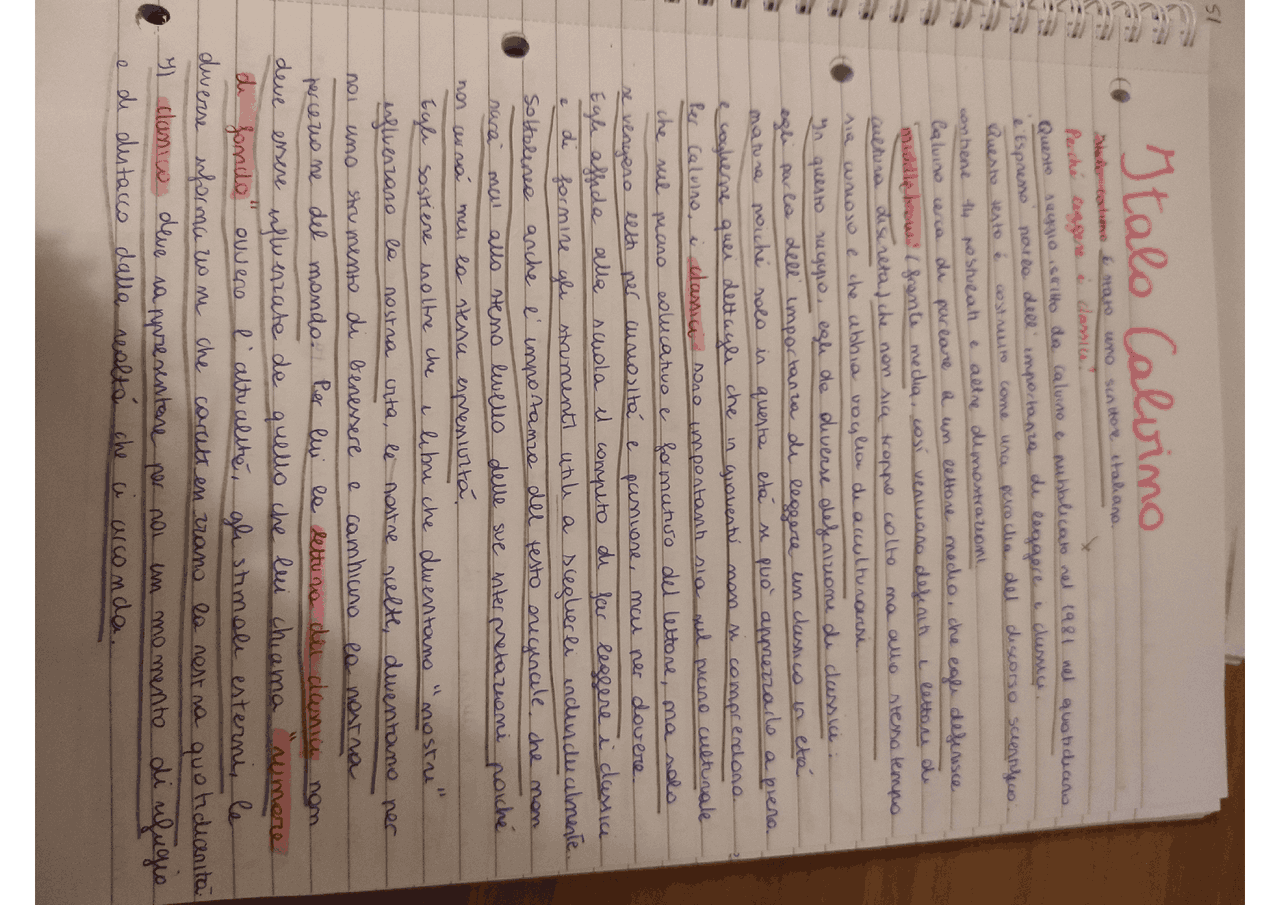 51
Italo Calvino
Italo Calvino è stato uno scrittore italiano.
Perché leggere i classici?
Questo saggio, scritto da calvino e pubblicato nel 1981 nel quotidiano
"l'Espresso" parla dell'importanza di leggere i classici.
Questo testo è costruito come una parodia del discorso scientifico:
contiene 14 postulati e altre dimostrazioni
Calvino cerca di parlare a un lettore medio, che egli definisce
"middlebrow" (fronte media, così venivano definiti i lettori di
cultura discreta) che non sia troppo colto ma allo stesso tempo
sia curioso e che abbia voglia di acculturarsi.
In questo saggio, egli da diverse definizioni di classici:
egli parla dell'importanza di leggere un classico in età
matura poiché solo in questa età si può apprezzarlo a piena
e coglierne quei dettagli che in gioventù non si comprendono.
Per Calvino, i classici sono importanti sia sul piano culturale
che sul piano educativo e formativo del lettore, ma solo
se vengono letti per curiosità e passione, mai per dovere
Egli affida alla scuola il compito di far leggere i classici
e di fornire gli strumenti utili a sceglierli individualmente.
Sottolinea anche l'importanza del testo originale, che non
sarà mai allo stesso livello delle sue interpretazioni poiché
non avrà mai la stessa espressività.
Egli sostiene inoltre che i libri che diventano "nostri"
influenzano la nostra vita, le nostre scelte, diventano per
noi uno strumento di benessere e cambiano la nostra
percezione del mondo. Per lui la lettura dei classici non
deve essere influenzata da quello che lui chiama "rumore
di fondo" ovvero l'attualità, gli stimoli esterni, le
diverse informazioni che caratterizzano la nostra quotidianità.
Il classico deve rappresentare per noi un momento di rifugio
e di distacco dalla realtà che ci circonda.